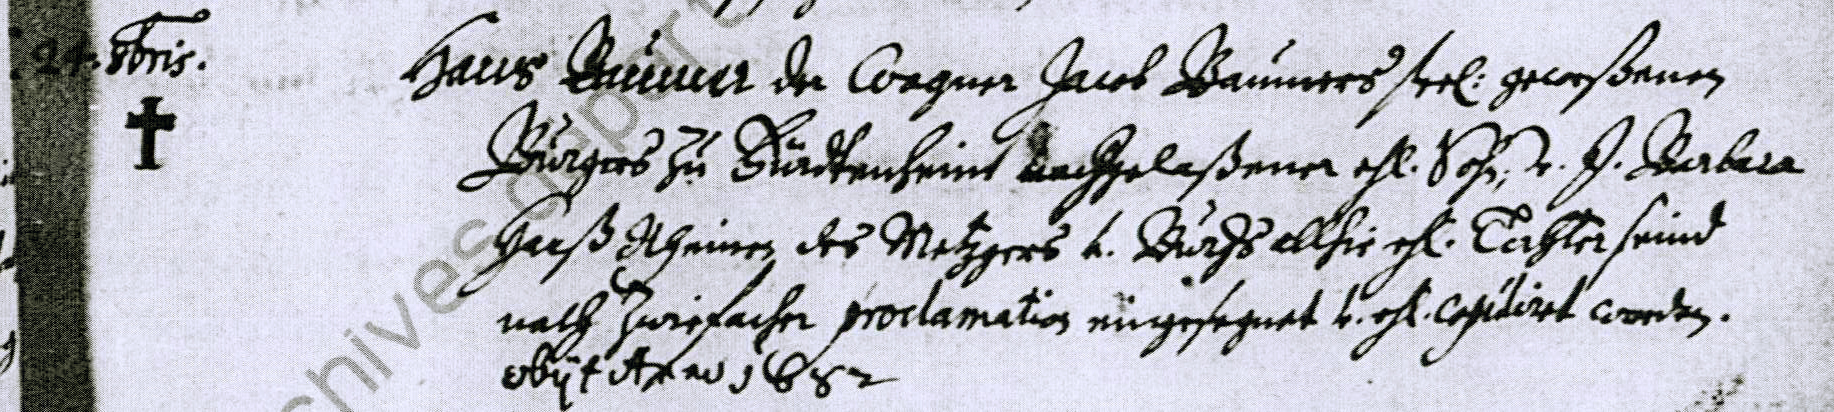 24. 8bris. Hans Baumer der Wagner Jacob Baumers seel: geweßenen
Burgers zu Dürckenheim nachgelaßener ehl. Sohn, v. J. Barbara
Hanß Rheiner des Metzgers v. Burgers allhie ehl. Tochter seind
nach zwiefacher proclamation eingesegnet v. ehl. copuliret worden.
obijt Anno 1682